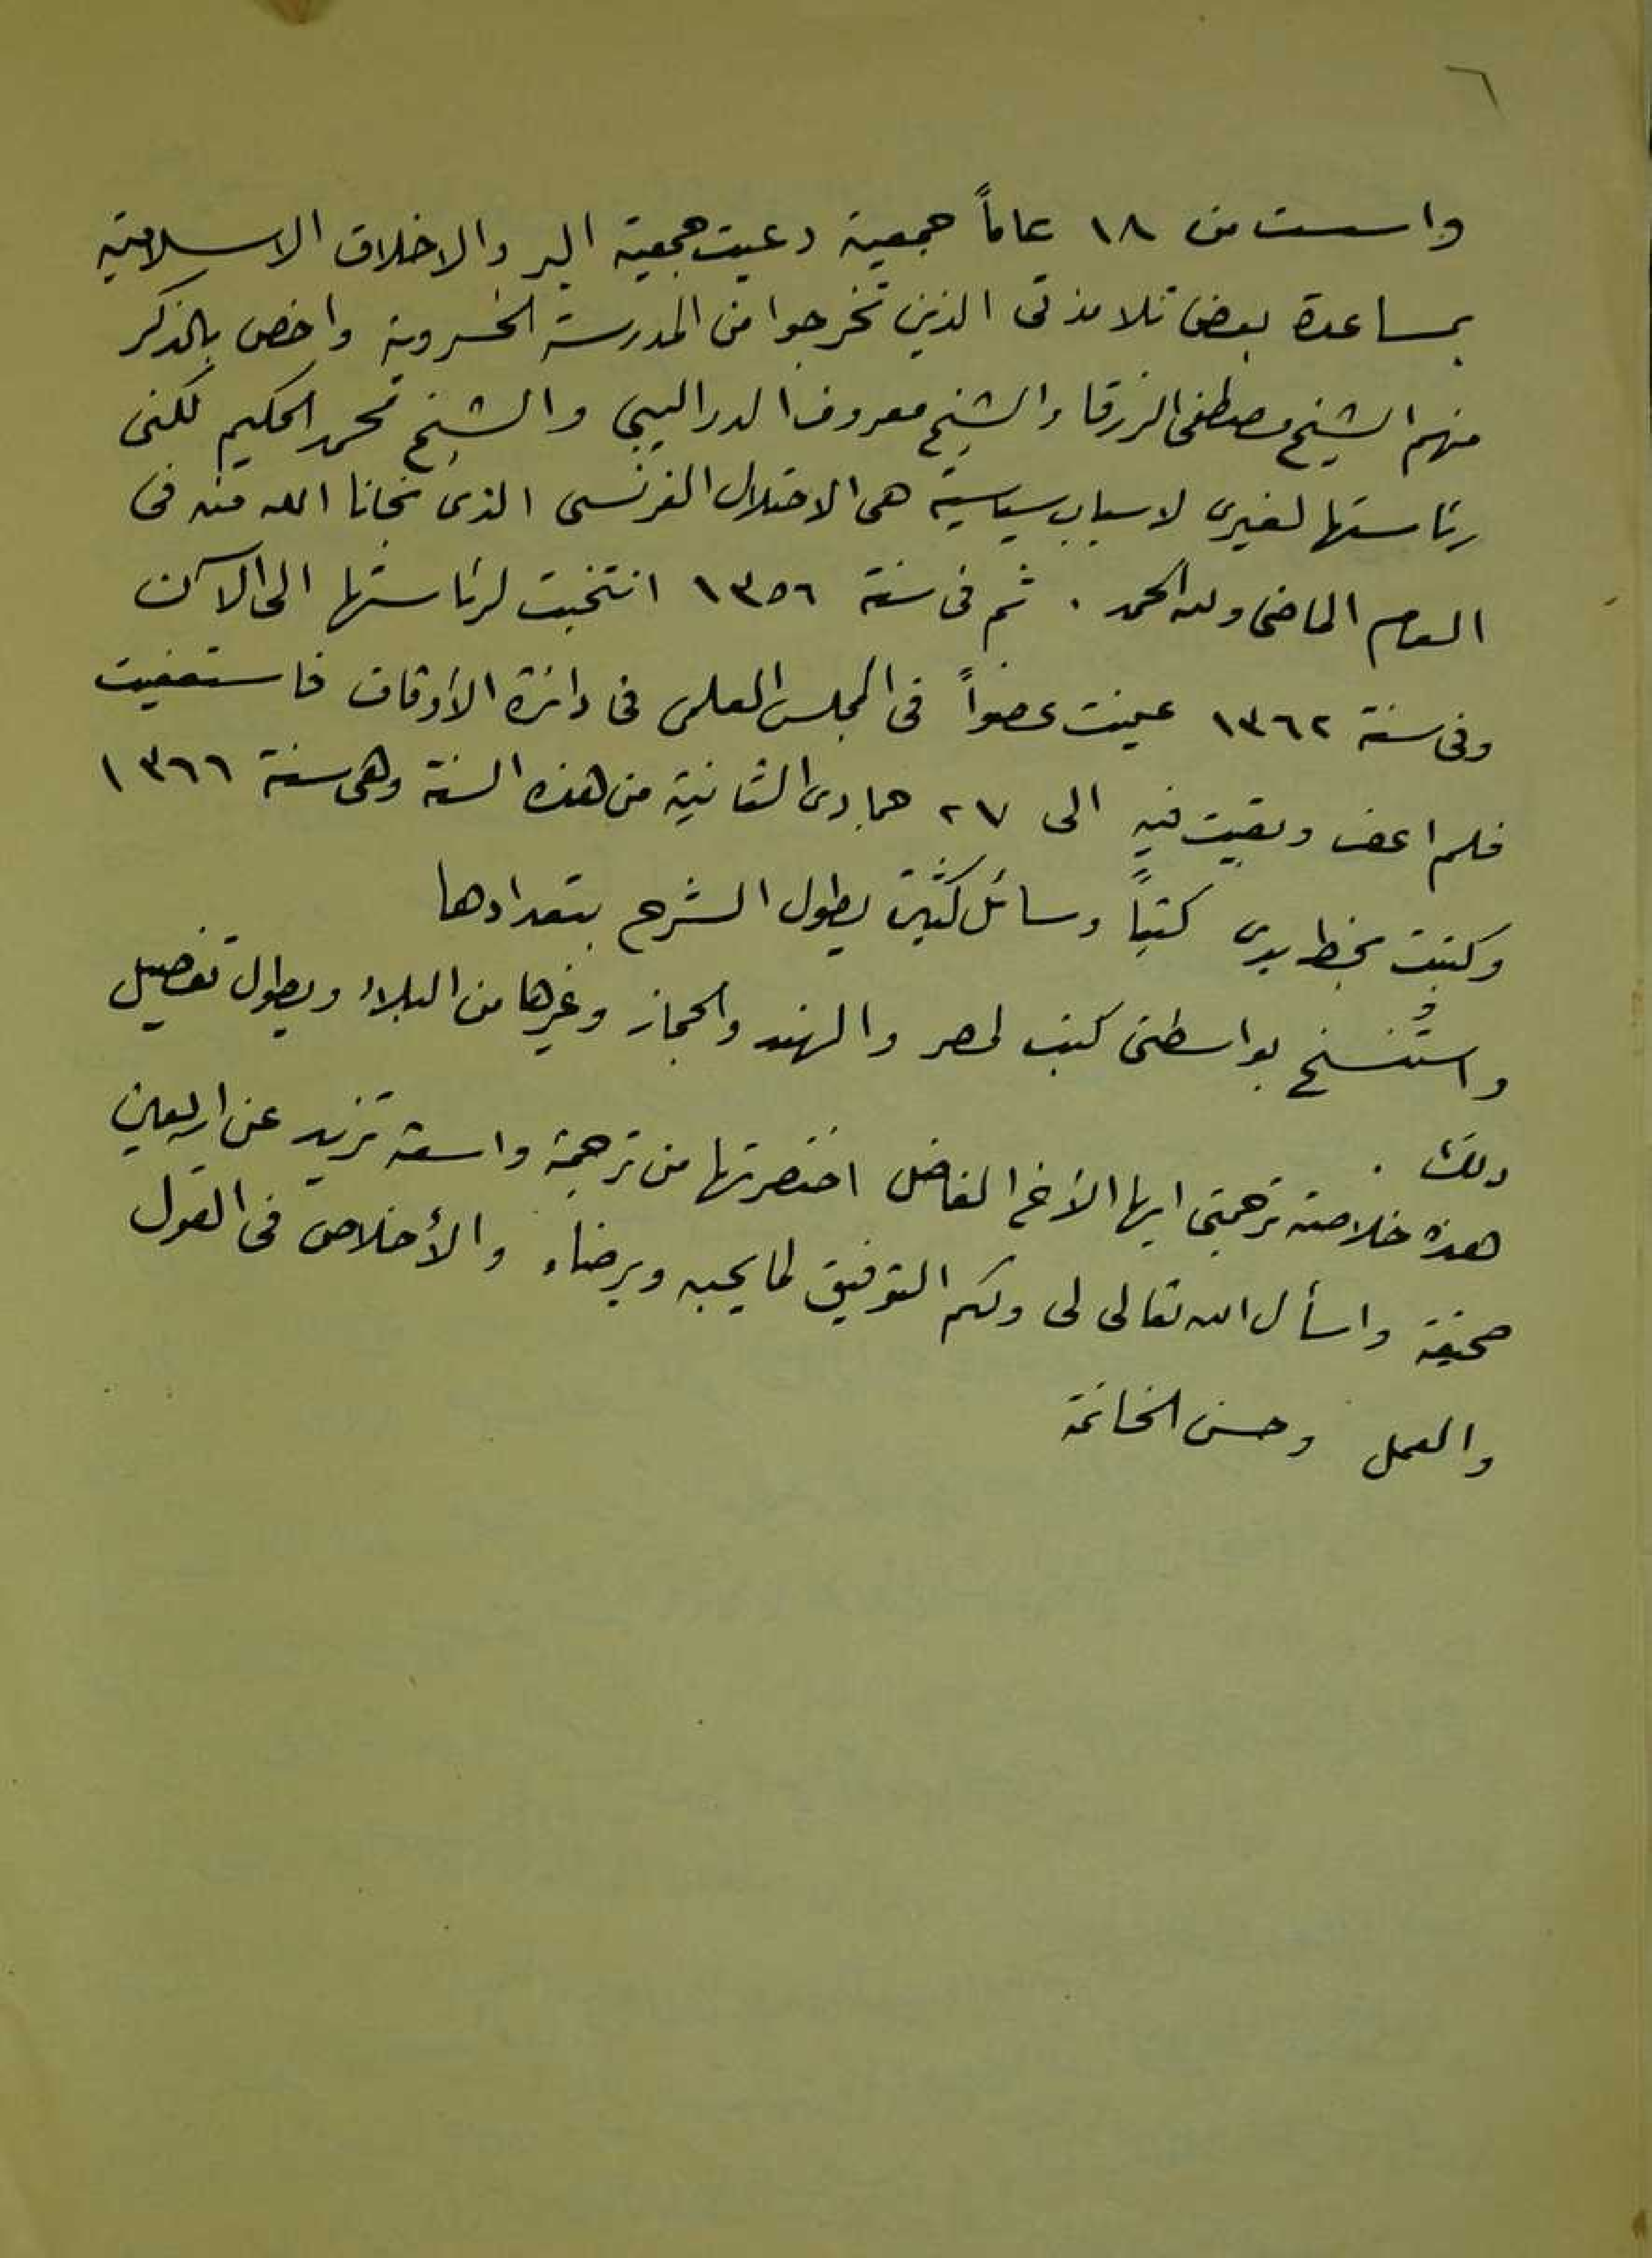 ٦
واسست من ١٨ عاماً جمعية دعيت جمعية البر والاخلاق الاسلامية
بمساعدة بعض تلامذتى الذين تخرجوا من المدرسة الخسروية واخص بالذكر
منهم الشيخ مصطفى الزرقا والشيخ معروف الدواليبي والشيخ محمد الحكيم لكنى
رئاستها لغيرى لاسباب سياسية هى الاحتلال الفرنسى الذى نجانا الله منه فى
العام الماضى ولله الحمد . ثم فى سنة ١٣٥٦ انتخبت لرئاستها الى الآن
وفى سنة ١٣٦٢ عينت عضواً فى المجلس العلمى فى دائرة الأوقاف فاستعفيت
فلم اعف وبقيت فيه الى ٢٧ جمادى الثانية من هذه السنة وهى سنة ١٣٦٦
وكتبت بخط يدى كتباً ورسائل كثيرة يطول الشرح بتعدادها
واستُنسخ بواسطتى كتب لمصر والهند والحجاز وغيرها من البلاد ويطول تفصيل
ذلك .
هذه خلاصة ترجمتى ايها الأخ الفاضل اختصرتها من ترجمة واسعة تزيد عن اربعين
صحيفة واسأل الله تعالى لى ولكم التوفيق لما يحبه ويرضاه والأخلاص فى القول
والعمل وحسن الخاتمة